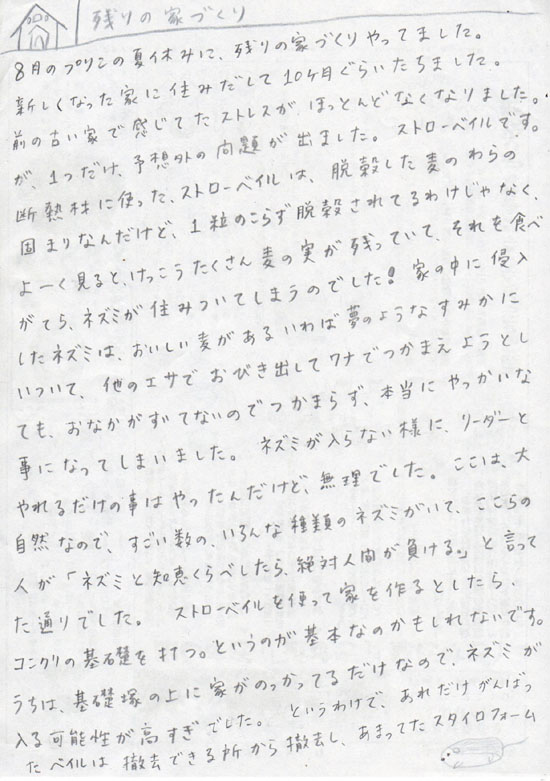 残りの家づくり
8月のプリンの夏休みに、残りの家づくりやってました。
新しくなった家に住みだして10ヶ月ぐらいたちました。
前の古い家で感じてたストレスが、ほっとんどなくなりました。
が、1つだけ、予想外の問題が出ました。ストローベイルです。
断熱材に使った、ストローベイルは、脱穀した麦のわらの
固まりなんだけど、1粒のこらず脱穀されてるわけじゃなく、
よーく見ると、けっこうたくさん麦の実が残っていて、それを食べ
がてら、ネズミが住みついてしまうのでした!家の中に侵入
したネズミは、おいしい麦があるいわば夢のようなすみかに
いついて、他のエサでおびき出してワナでつかまえようとし
ても、おなかがすいてないのでつかまらず、本当にやっかいな
事になってしまいました。ネズミが入らない様に、リーダーと
やれるだけの事はやったんだけど、無理でした。ここは、大
自然なので、すごい数の、いろんな種類のネズミがいて、ここらの
人が「ネズミと知恵くらべしたら、絶対人間が負ける。」と言って
た通りでした。ストローベイルを使って家を作るとしたら、
コンクリの基礎を打つ。というのが基本なのかもしれないです。
うちは、基礎塚の上に家がのっかってるだけなので、ネズミが
入る可能性が高すぎでした。というわけで、あれだけがんばっ
たベイルは撤去できる所から撤去し、あまってたスタイロフォーム